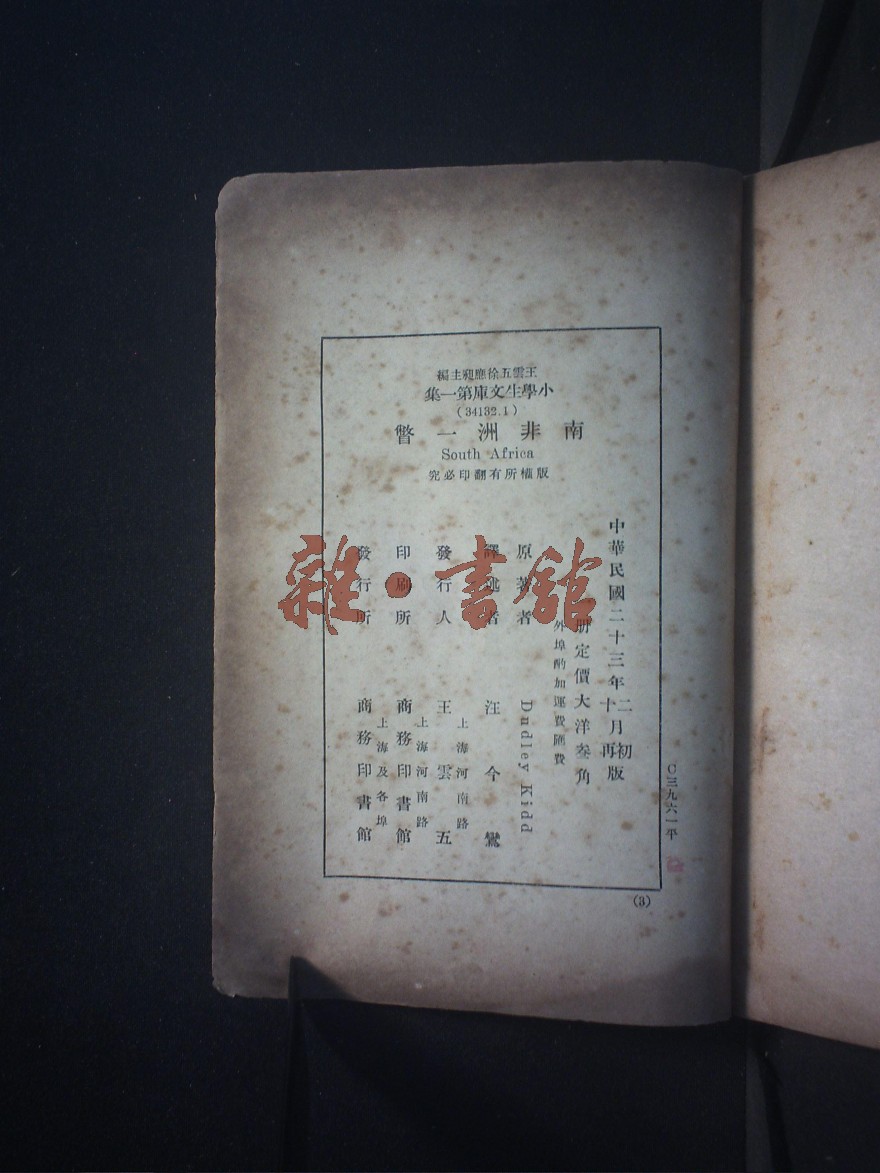 王雲五徐應昶主編
小學生文庫第一集
(34132.1)
南非洲一瞥
South Africa
版權所有翻印必究
中華民國二十三年二月初版
十月再版
册定價大洋叁角
外埠酌加運費匯費
原著者 Dudley Kidd
譯述者 汪今鸞
發行人 王雲五
上海河南路
印刷所 商務印書館
上海河南路
發行所 商務印書館
上海及各埠
C三九六一平
(3)
雜·書館